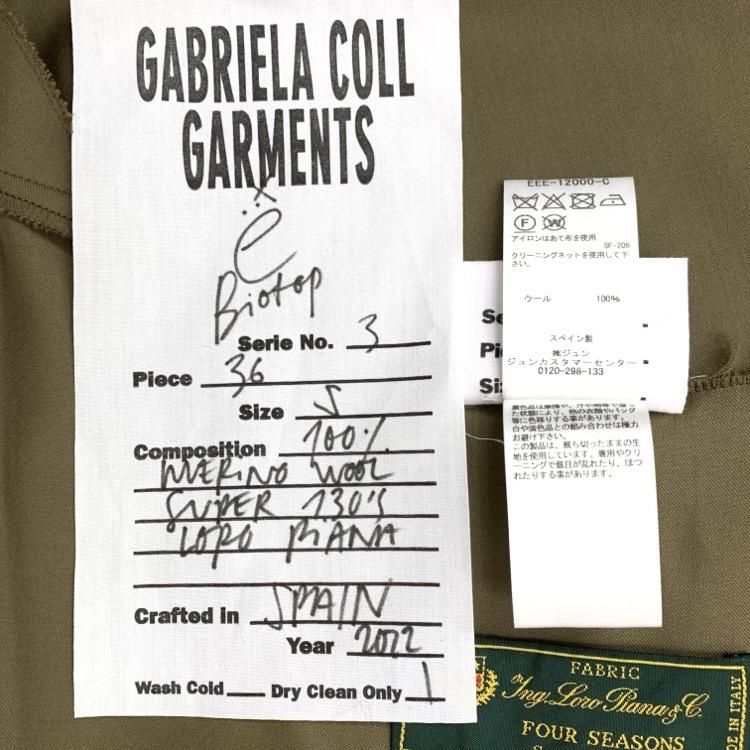 GABRIELA COLL
GARMENTS
ë
Biotop
Serie No. 3
Piece 36
Size S
Composition 100%
MERINO WOOL
SUPER 130'S
LORO PIANA
Crafted in SPAIN
Year 2022
Wash Cold
Dry Clean Only
EEE-12000-C
F W
アイロンはあて布を使用
SF-206
クリーニングネットを使用して下
さい。
ウール 100%
スペイン製
㈱ジュン
ジュンカスタマーセンター
0120-298-133
Se
Pi
Si
た状態により、他の衣類やバッグ
等に色移りする事があります。
白や淡色品との組み合わせは極力
お避け下さい。
この製品は、裁ち切ったままの生
地を使用しています。着用やクリ
ーニングで裁目が乱れたり、ほつ
れたりする事があります。
FABRIC
Ing. Loro Piana & C.
FOUR SEASONS
E IN ITALY